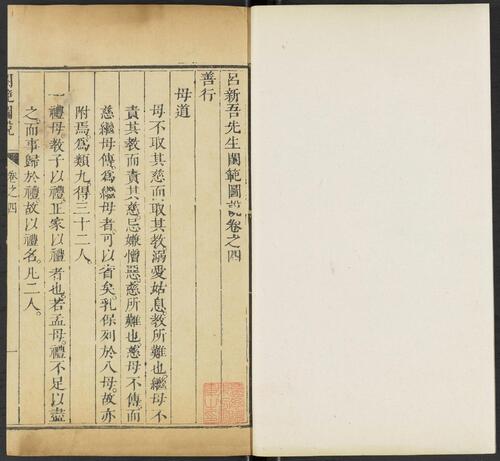 呂新吾先生閨範圖說卷之四
善行
母道
母不取其慈而取其教溺愛姑息教所難也繼母不
責其教而責其慈忌嫌憎惡慈所難也慈母不傳而
慈繼母傳爲繼母者可以省矣乳保列於八母故亦
附焉爲類九得三十二人。
一禮母教子以禮正家以禮者也若孟母禮不足以盡
之而事歸於禮故以禮名凡二人。
閨範圖說
卷之四
一